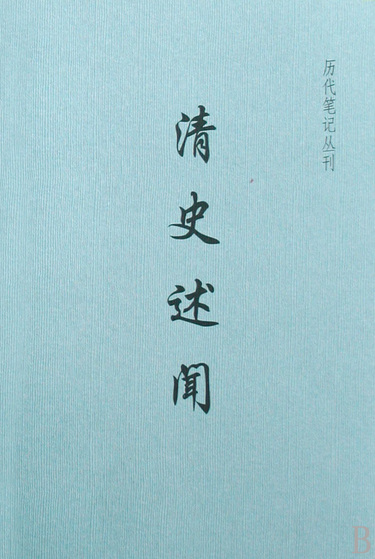 历代笔记丛刊
清史述闻
B